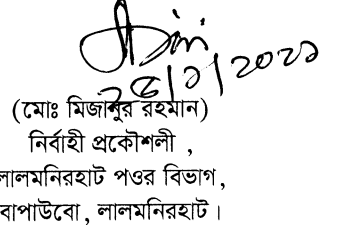 (মোঃ মিজানুর রহমান)
নির্বাহী প্রকৌশলী ,
লালমনিরহাট পওর বিভাগ,
বাপাউবো, লালমনিরহাট ।